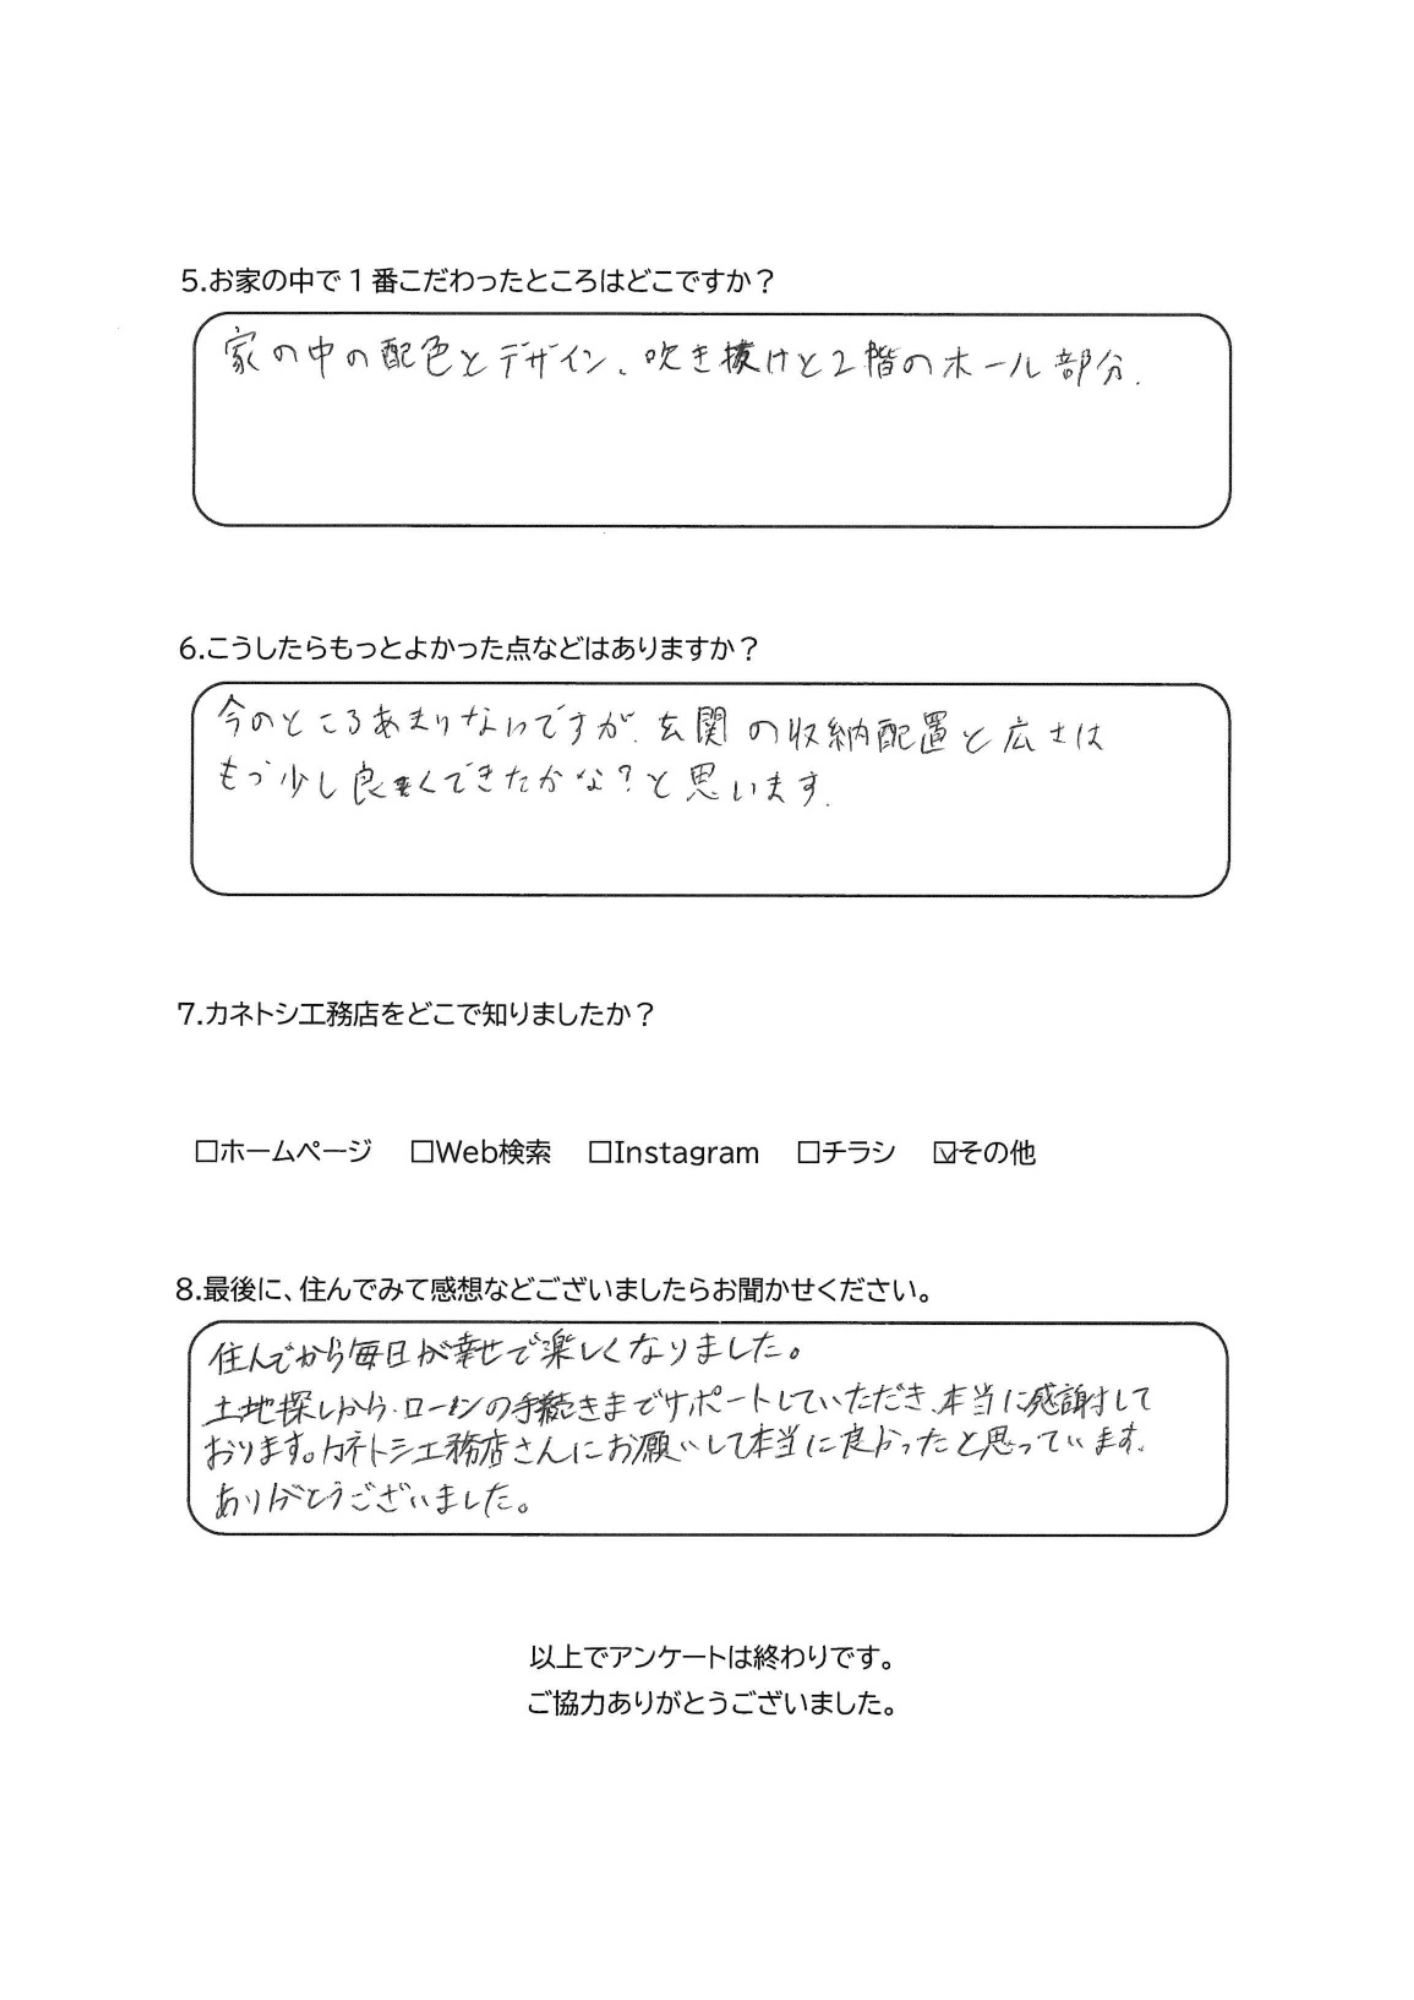 5.お家の中で1番こだわったところはどこですか？
家の中の配色とデザイン、吹き抜けと2階のホール部分.
6.こうしたらもっとよかった点などはありますか？
今のところあまりないですが、玄関の収納配置と広さは
もう少し良くできたかな？と思います.
7.カネトシ工務店をどこで知りましたか？
□ホームページ □Web検索 □Instagram □チラシ ☑その他
8.最後に、住んでみて感想などございましたらお聞かせください。
住んでから毎日が幸せで楽しくなりました。
土地探しから、ローンの手続きまでサポートしていただき、本当に感謝して
おります。カネトシ工務店さんにお願いして本当に良かったと思っています。
ありがとうございました。
以上でアンケートは終わりです。
ご協力ありがとうございました。